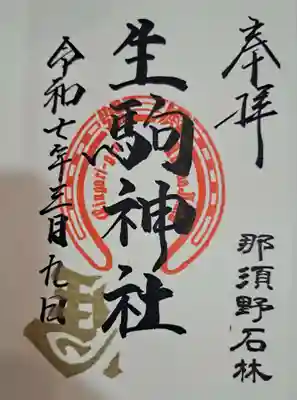 奉拝
那須野石林
生駒神社
令和七年三月九日
馬